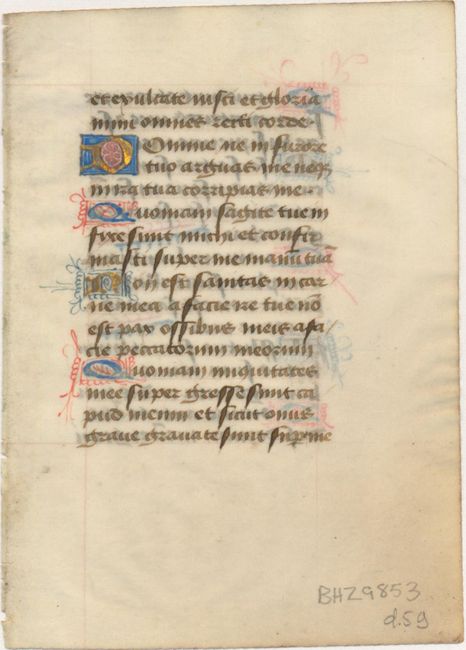 et exultate iusti et gloria
mini omnes recti corde.
Domine ne in furore
tuo arguas me neqȝ
in ira tua corripias me.
Quoniam sagite tue in
fixe sunt michi et confir
masti super me manū tuā
Non est sanitas in car
ne mea a facie ire tue nō
est pax ossibus meis a fa/
cie peccatorum meorum
Quoniam iniquitates
mee super gresse sunt ca
pud meum et sicut onus
graue grauate sunt sup me
BHZ9853
d.59